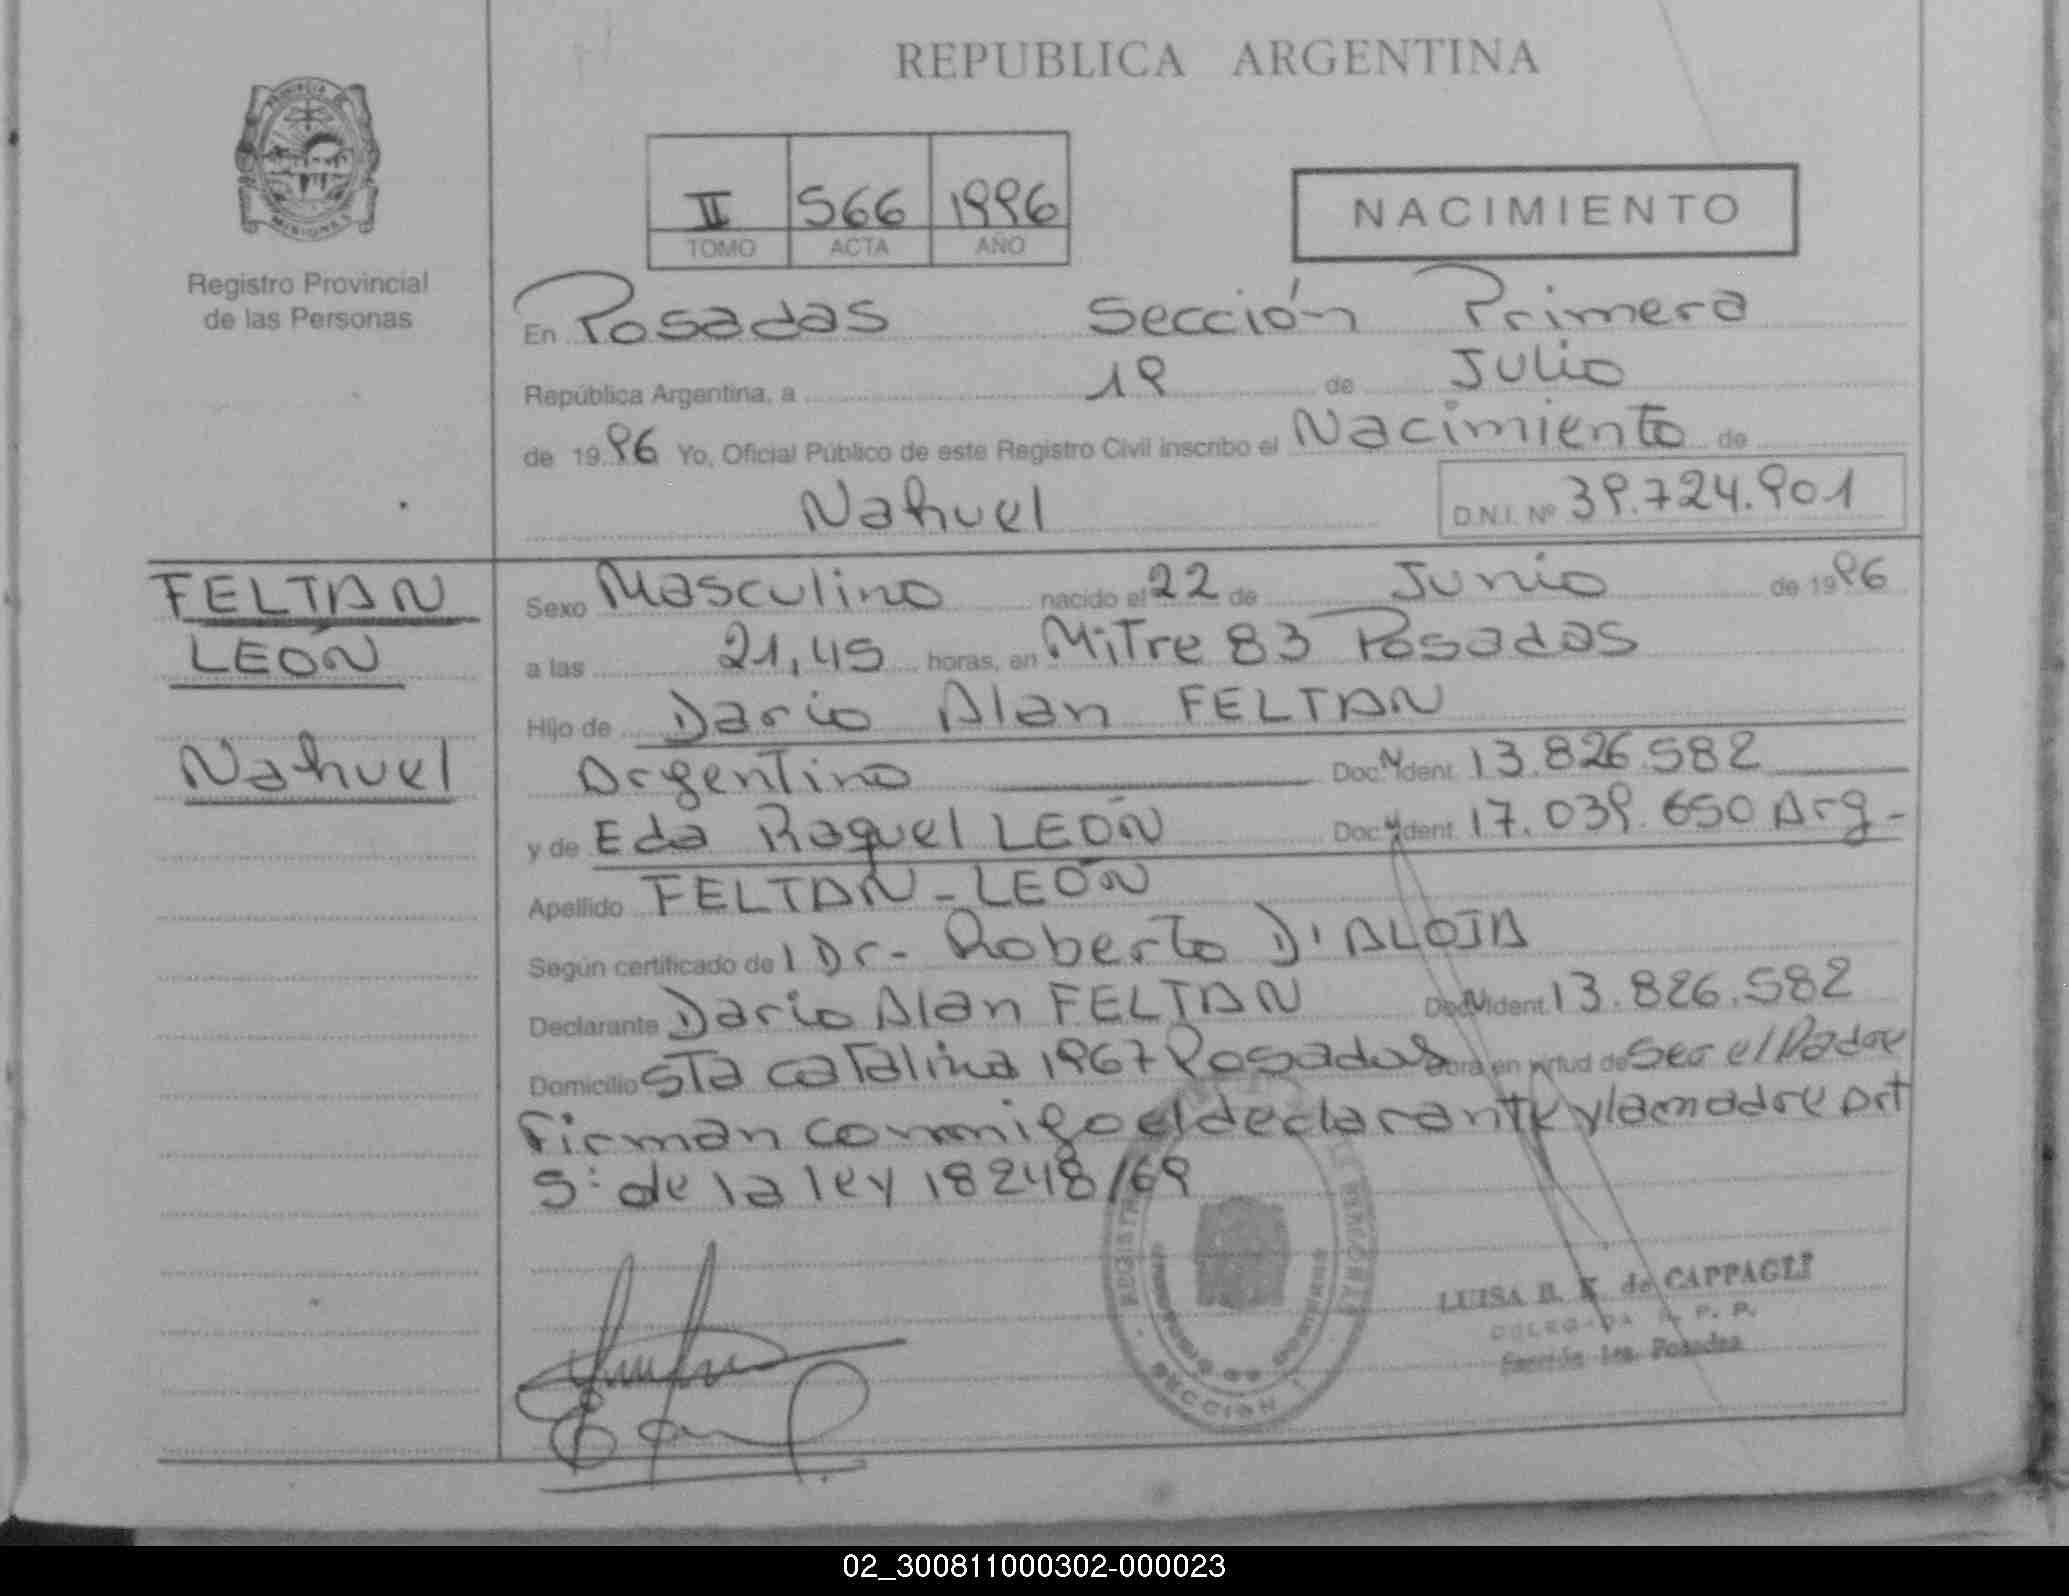 REPUBLICA ARGENTINA
PROVINCIA DE
MISIONES
Registro Provincial
de las Personas
II 566 1996
TOMO ACTA AÑO
NACIMIENTO
En Posadas Sección Primera
República Argentina, a 19 de Julio
de 1996 Yo, Oficial Público de este Registro Civil inscribo el Nacimiento de
Nahuel D.N.I. Nº 39.724.901
FELTAN
LEÓN
Nahuel
Sexo Masculino nacido el 22 de Junio de 1996
a las 21,45 horas, en Mitre 83 Posadas
Hijo de Dario Alan FELTAN
Argentino Doc. Ident. 13.826.582
y de Eda Raquel LEÓN Doc. Ident. 17.039.650 Arg-
Apellido FELTAN-LEÓN
Según certificado del Dr- Roberto D'ALOJA
Declarante Dario Alan FELTAN Doc. Ident. 13.826.582
Domicilio Sta Catalina 1967 Posadas obra en virtud de ser el Padre
Firman conmigo el declarante y la madre Art
5: de la ley 18248/69
LUISA B. K. de CAPPAGLI
DELEGADA R. P. P.
Sección 1ra. Posadas
SECCION 1
02_300811000302-000023